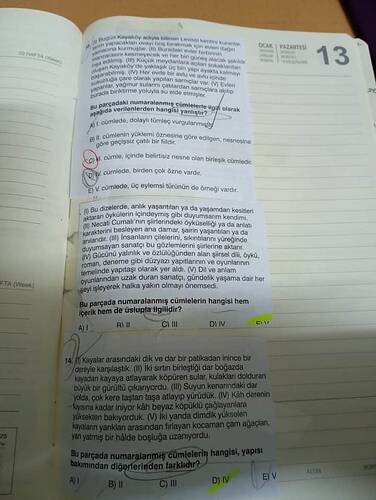 (I) Bugün Kayaköy adıyla bilinen Levissi kentini kuranlar,
tarım yapacakları ovayı boş bırakmak için evleri dağın
yamacına kurmuşlar. (II) Buradaki evler birbirinin
manzarasını kesmeyecek ve her biri güneş alacak şekilde
inşa edilmiş. (III) Küçük meydanlara açılan sokaklardan
oluşan Kayaköy'de yaklaşık üç bin yapı ayakta kalmayı
başarabilmiş. (IV) Her evde bir avlu ve avlu içinde
susuzluğa çare olarak yapılan sarnıçlar var. (V) Evleri
yapanlar, yağmur sularını çatılardan sarnıçlara akıtıp
burada biriktirme yoluyla su elde etmişler.
Bu parçadaki numaralanmış cümlelerle ilgili olarak
aşağıda verilenlerden hangisi yanlıştır?
A) I. cümlede, dolaylı tümleç vurgulanmıştır.
B) II. cümlenin yüklemi öznesine göre edilgen, nesnesine
göre geçişsiz çatılı bir fiildir.
C) III. cümle, içinde belirtisiz nesne olan birleşik cümledir.
D) IV. cümlede, birden çok özne vardır.
E) V. cümlede, üç eylemsi türünün de örneği vardır.
OCAK
PAZARTESİ
13
(I) Bu dizelerde, anlık yaşantıları ya da yaşamdan kesitleri
aktaran öykülerin içindeymiş gibi duyumsarım kendimi.
(II) Necati Cumalı'nın şiirlerindeki öykuselliği ya da anlatı
karakterini besleyen ana damar, şairin yaşantıları ya da
anılarıdır. (III) İnsanların çilelerini, sıkıntılarını yüreğinde
duyumsayan sanatçı bu gözlemlerini şiirlerine aktarır.
(IV) Gücünü yalınlık ve özlülüğünden alan şiirsel dili, öykü,
roman, deneme gibi düzyazı yapıtlarının ve oyunlarının
temelinde yapıtaşı olarak yer aldı. (V) Dil ve anlam
oyunlarından uzak duran sanatçı, gündelik yaşama dair her
şeyi işleyerek halka yakın olmayı önemsedi.
Bu parçada numaralanmış cümlelerin hangisi hem
içerik hem de üslupla ilgilidir?
A) I B) II C) III D) IV E) V
14. (I) Kayalar arasındaki dik ve dar bir patikadan inince bir
dereyle karşılaştık. (II) İki sırtın birleştiği dar boğazda
kayadan kayaya atlayarak köpüren sular, kulakları dolduran
büyük bir gürültü çıkarıyordu. (III) Suyun kenarındaki dar
yolda, çok kere taştan taşa atlayıp yürüdük. (IV) Kâh derenin
kıyısına kadar iniyor kâh beyaz köpüklü çağlayanlara
yüksekten bakıyorduk. (V) İki yanda dimdik yükselen
kayaların yarıkları arasından fırlayan kocaman çam ağaçları,
yan yatmış bir hâlde boşluğa uzanıyordu.
Bu parçada numaralanmış cümlelerin hangisi, yapısı
bakımından diğerlerinden farklıdır?
A) I B) II C) III D) IV E) V